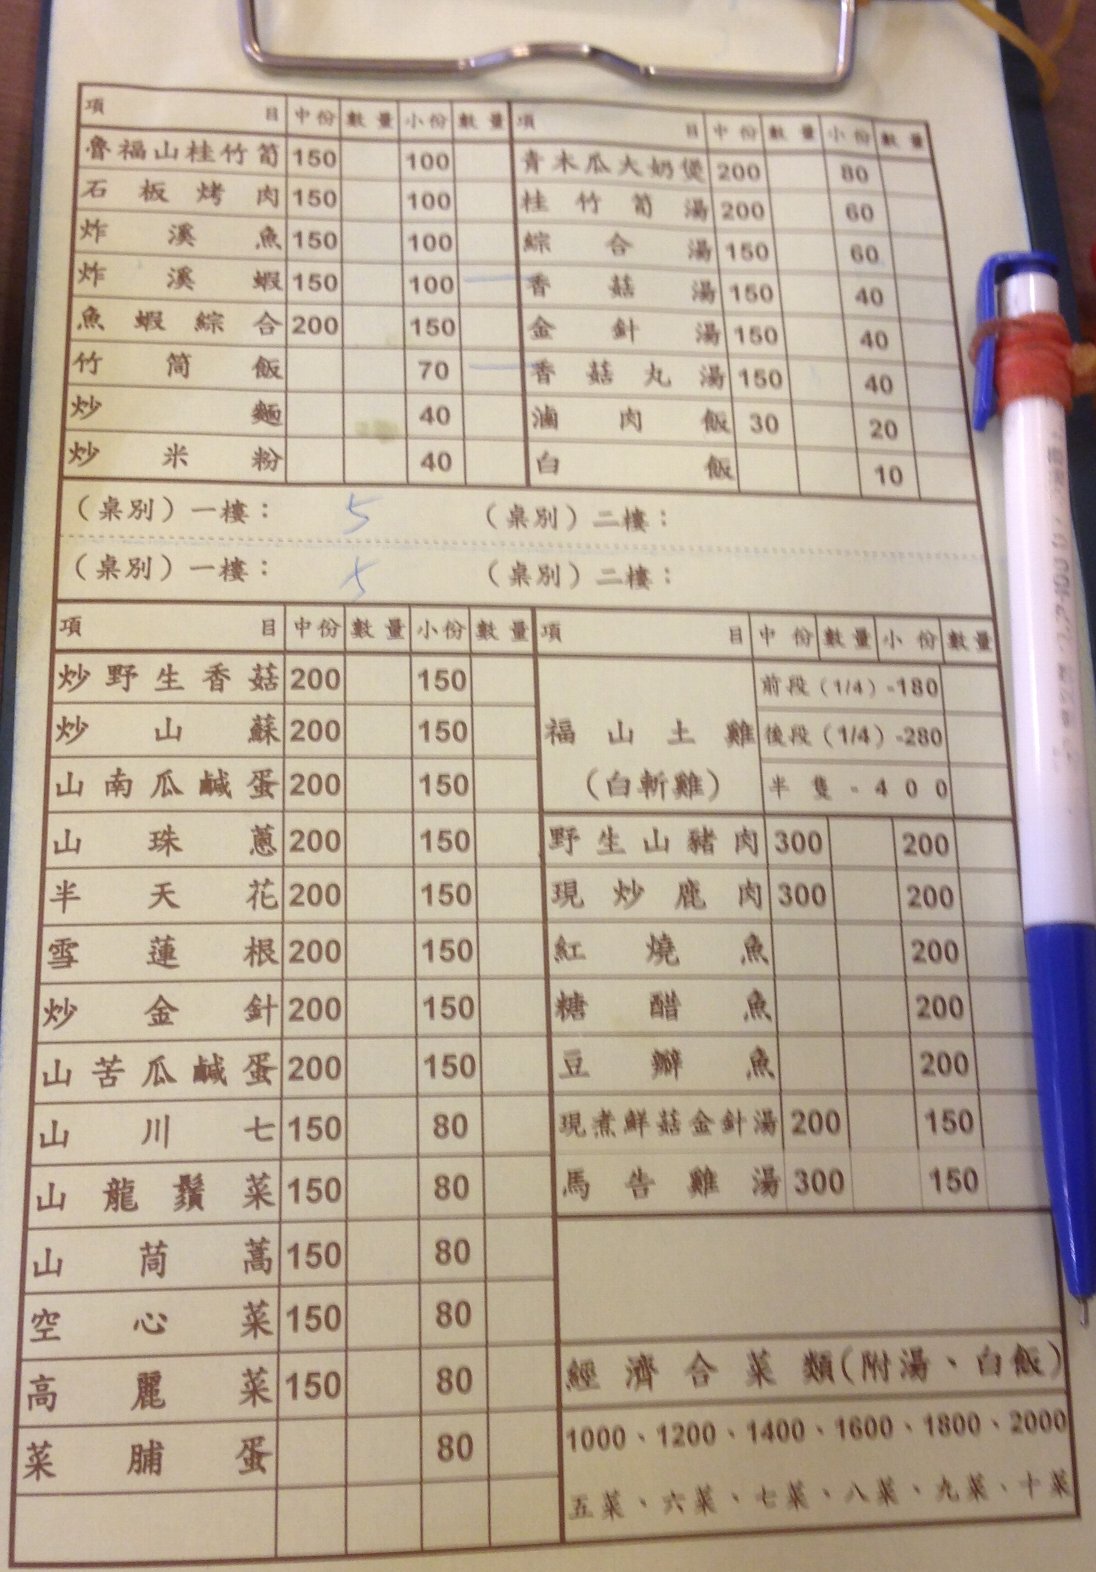 項目 中份 數量 小份 數量 項目 中份 數量 小份 數量
魯福山桂竹筍 150 100 青木瓜大奶煲 200 80
石板烤肉 150 100 桂竹筍湯 200 60
炸溪魚 150 100 綜合湯 150 60
炸溪蝦 150 100 香菇湯 150 40
魚蝦綜合 200 150 金針湯 150 40
竹筒飯 70 香菇丸湯 150 40
炒麵 40 滷肉飯 30 20
炒米粉 40 白飯 10
(桌別)一樓: 5 (桌別)二樓:
(桌別)一樓: 5 (桌別)二樓:
項目 中份 數量 小份 數量
炒野生香菇 200 150
炒山蘇 200 150
山南瓜鹹蛋 200 150
山珠蔥 200 150
半天花 200 150
雪蓮根 200 150
炒金針 200 150
山苦瓜鹹蛋 200 150
山川七 150 80
山龍鬚菜 150 80
山茼蒿 150 80
空心菜 150 80
高麗菜 150 80
菜脯蛋 80
項目 中份 數量 小份 數量
福山土雞
(白斬雞)
前段(1/4)-180
後段(1/4)-280
半隻-400
野生山豬肉 300 200
現炒鹿肉 300 200
紅燒魚 200
糖醋魚 200
豆瓣魚 200
現煮鮮菇金針湯 200 150
馬告雞湯 300 150
經濟合菜類(附湯、白飯)
1000、1200、1400、1600、1800、2000
五菜、六菜、七菜、八菜、九菜、十菜